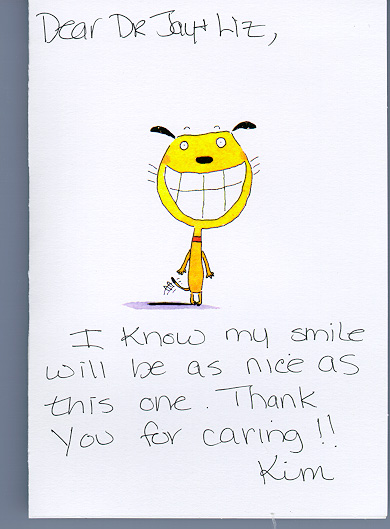 Dear Dr Jay + Liz,
I know my smile
will be as nice as
this one. Thank
You for caring!!
Kim